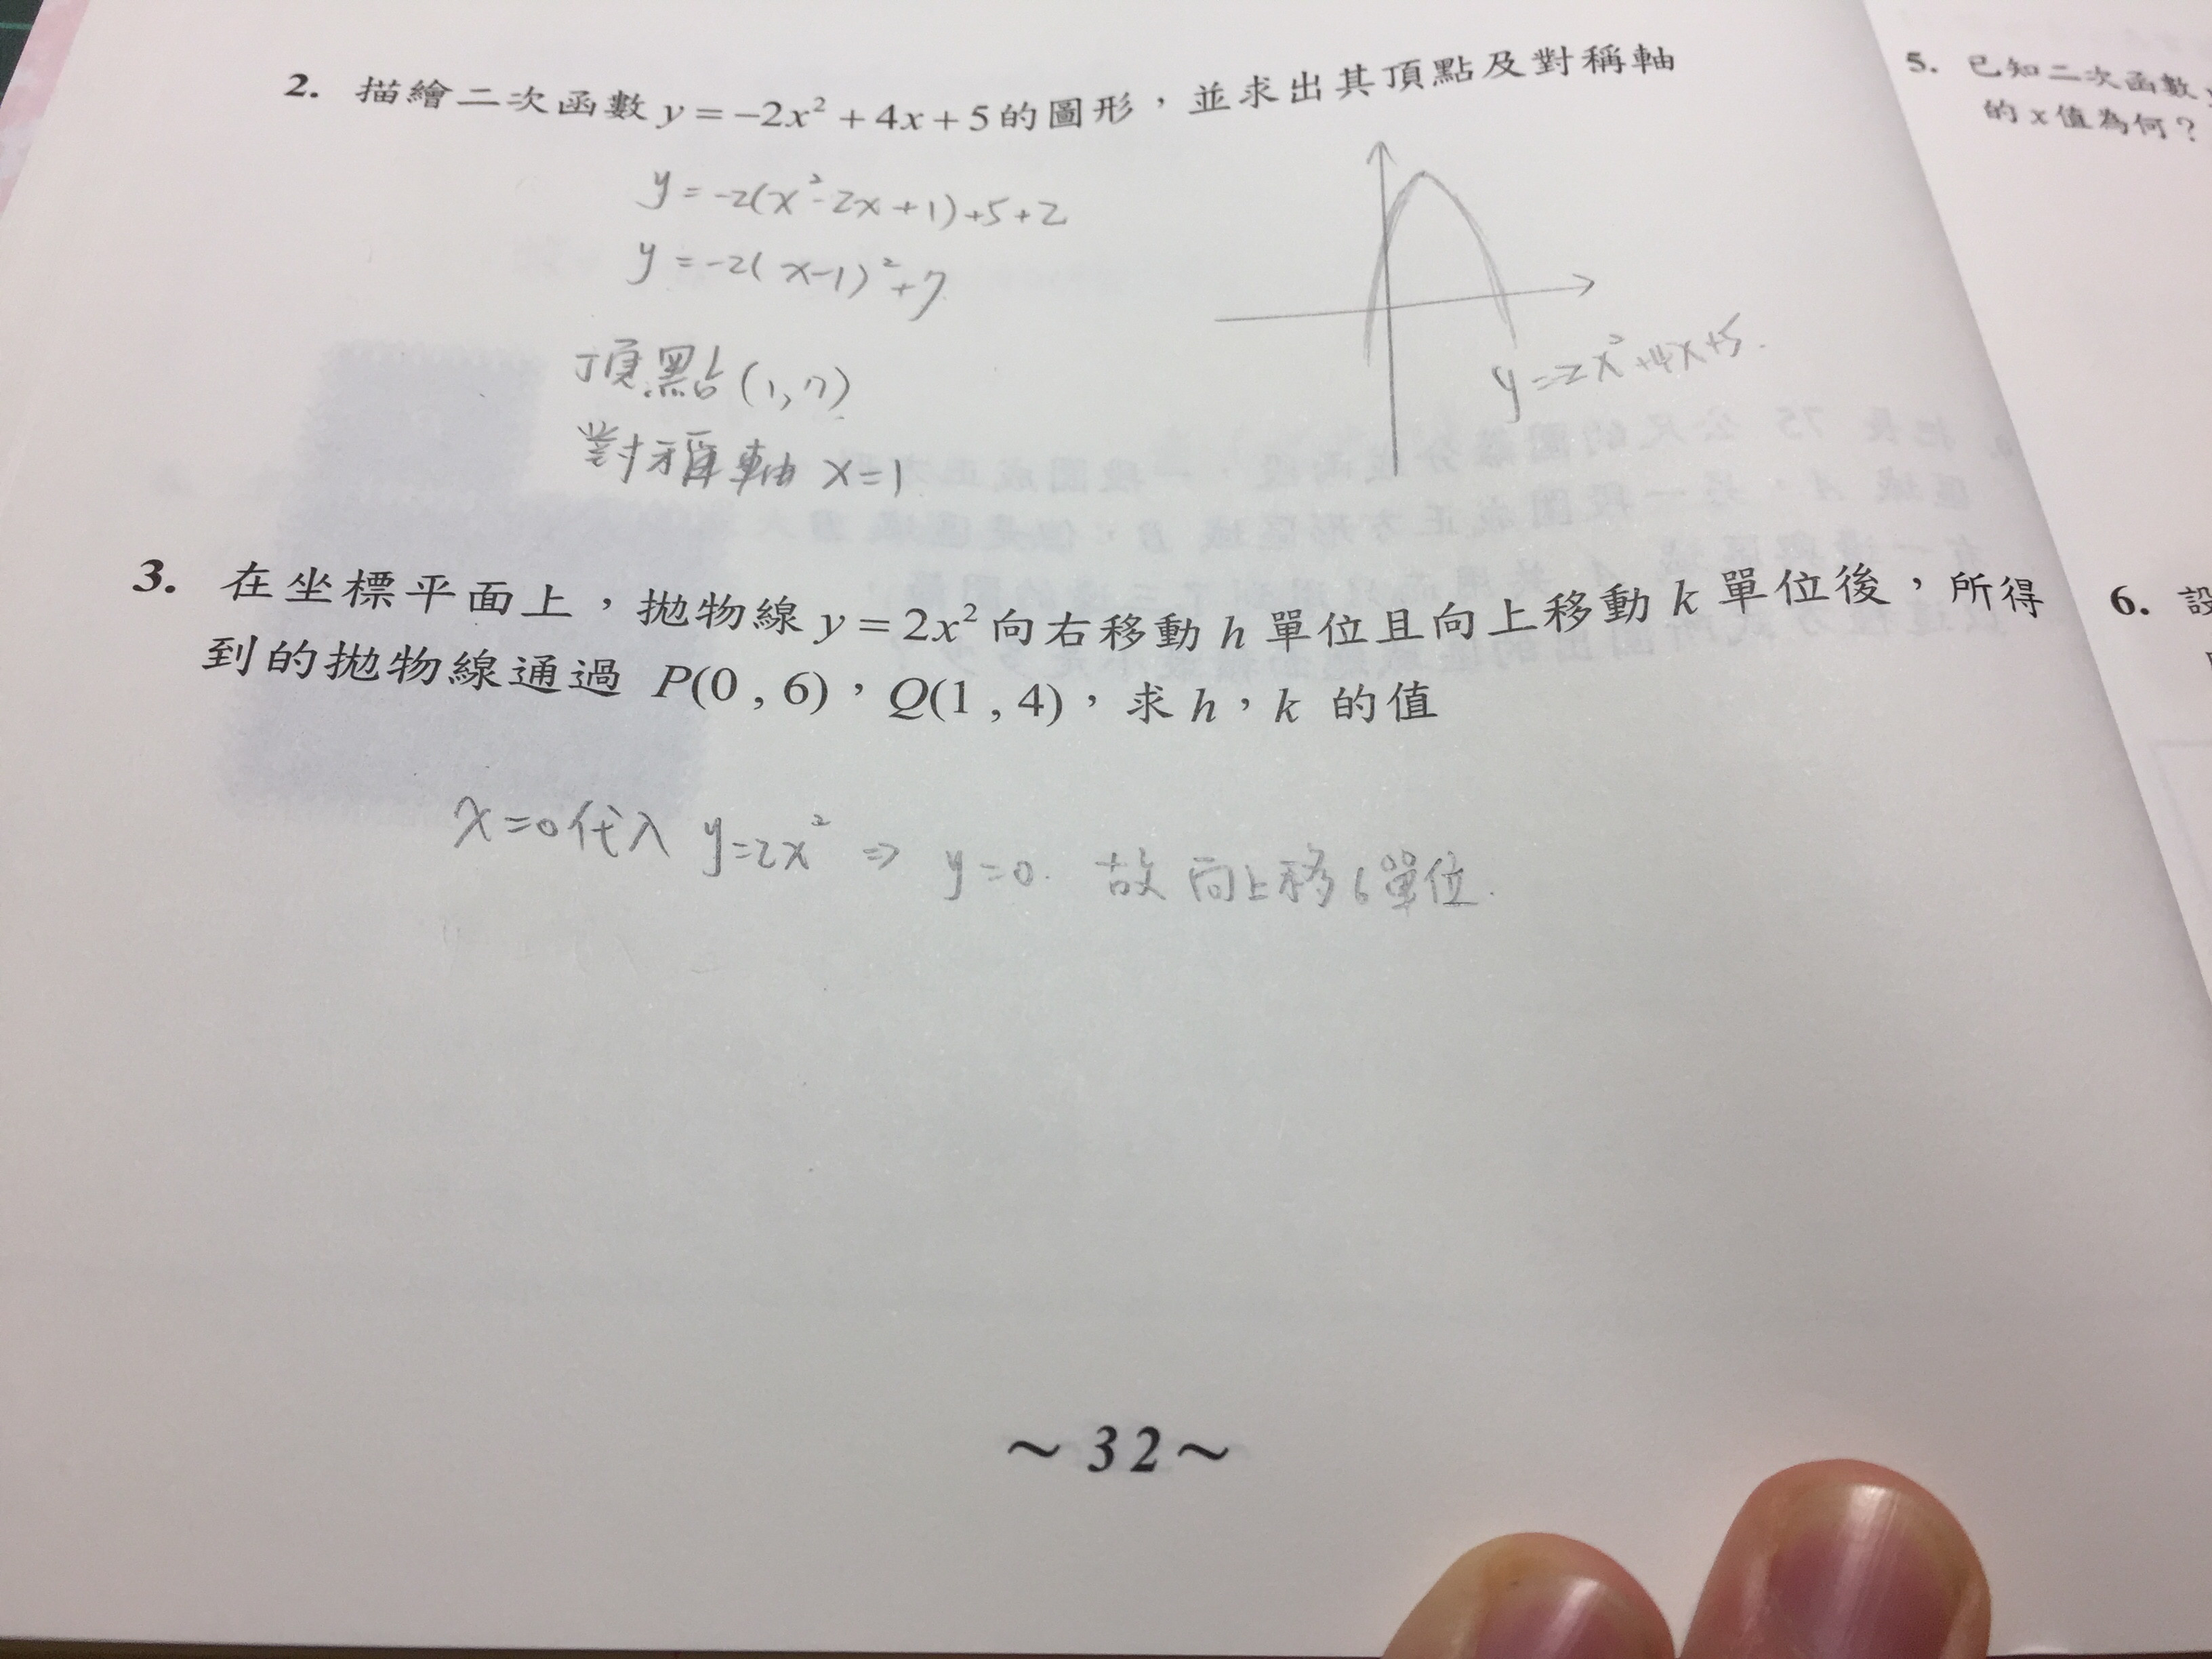 2. 描繪二次函數 y = −2x² + 4x + 5 的圖形，並求出其頂點及對稱軸
y = -2(x²-2x+1)+5+2
y = -2(x-1)²+7
頂點(1,7)
對稱軸 x=1
y=-2x²+4x+5.
3. 在坐標平面上，拋物線 y = 2x² 向右移動 h 單位且向上移動 k 單位後，所得
到的拋物線通過 P(0 , 6)，Q(1 , 4)，求 h，k 的值
x=0代入 y=2x² ⇒ y=0. 故向上移6單位.
~ 32 ~
5. 已知二次函數
的 x 值為何？
6. 設